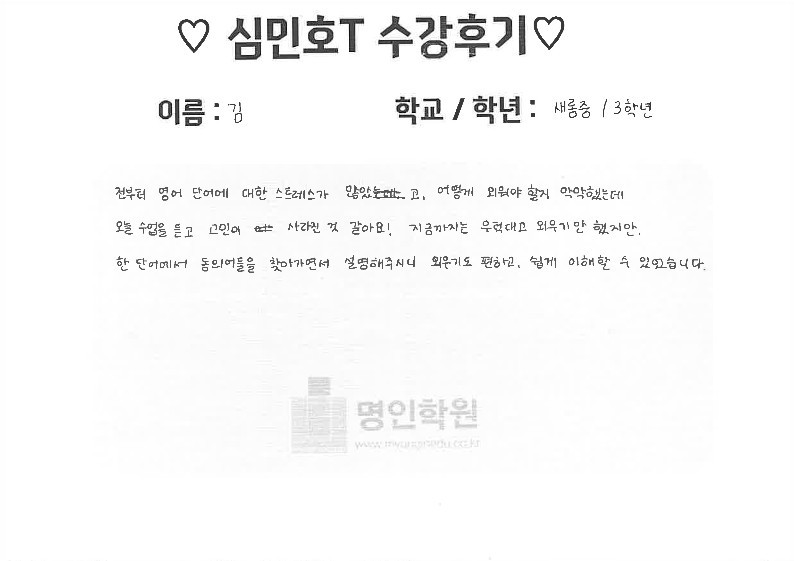 ♡ 심민호T 수강후기♡
이름 : 김
학교 / 학년 : 새롬중 / 3학년
전부터 영어 단어에 대한 스트레스가 많았고, 어떻게 외워야 할지 막막했는데
오늘 수업을 듣고 고민이 사라진 것 같아요! 지금까지는 무턱대고 외우기만 했지만,
한 단어에서 동의어들을 찾아가면서 설명해주시니 외우기도 편하고, 쉽게 이해할 수 있었습니다.
명인학원
www.myunginedu.co.kr